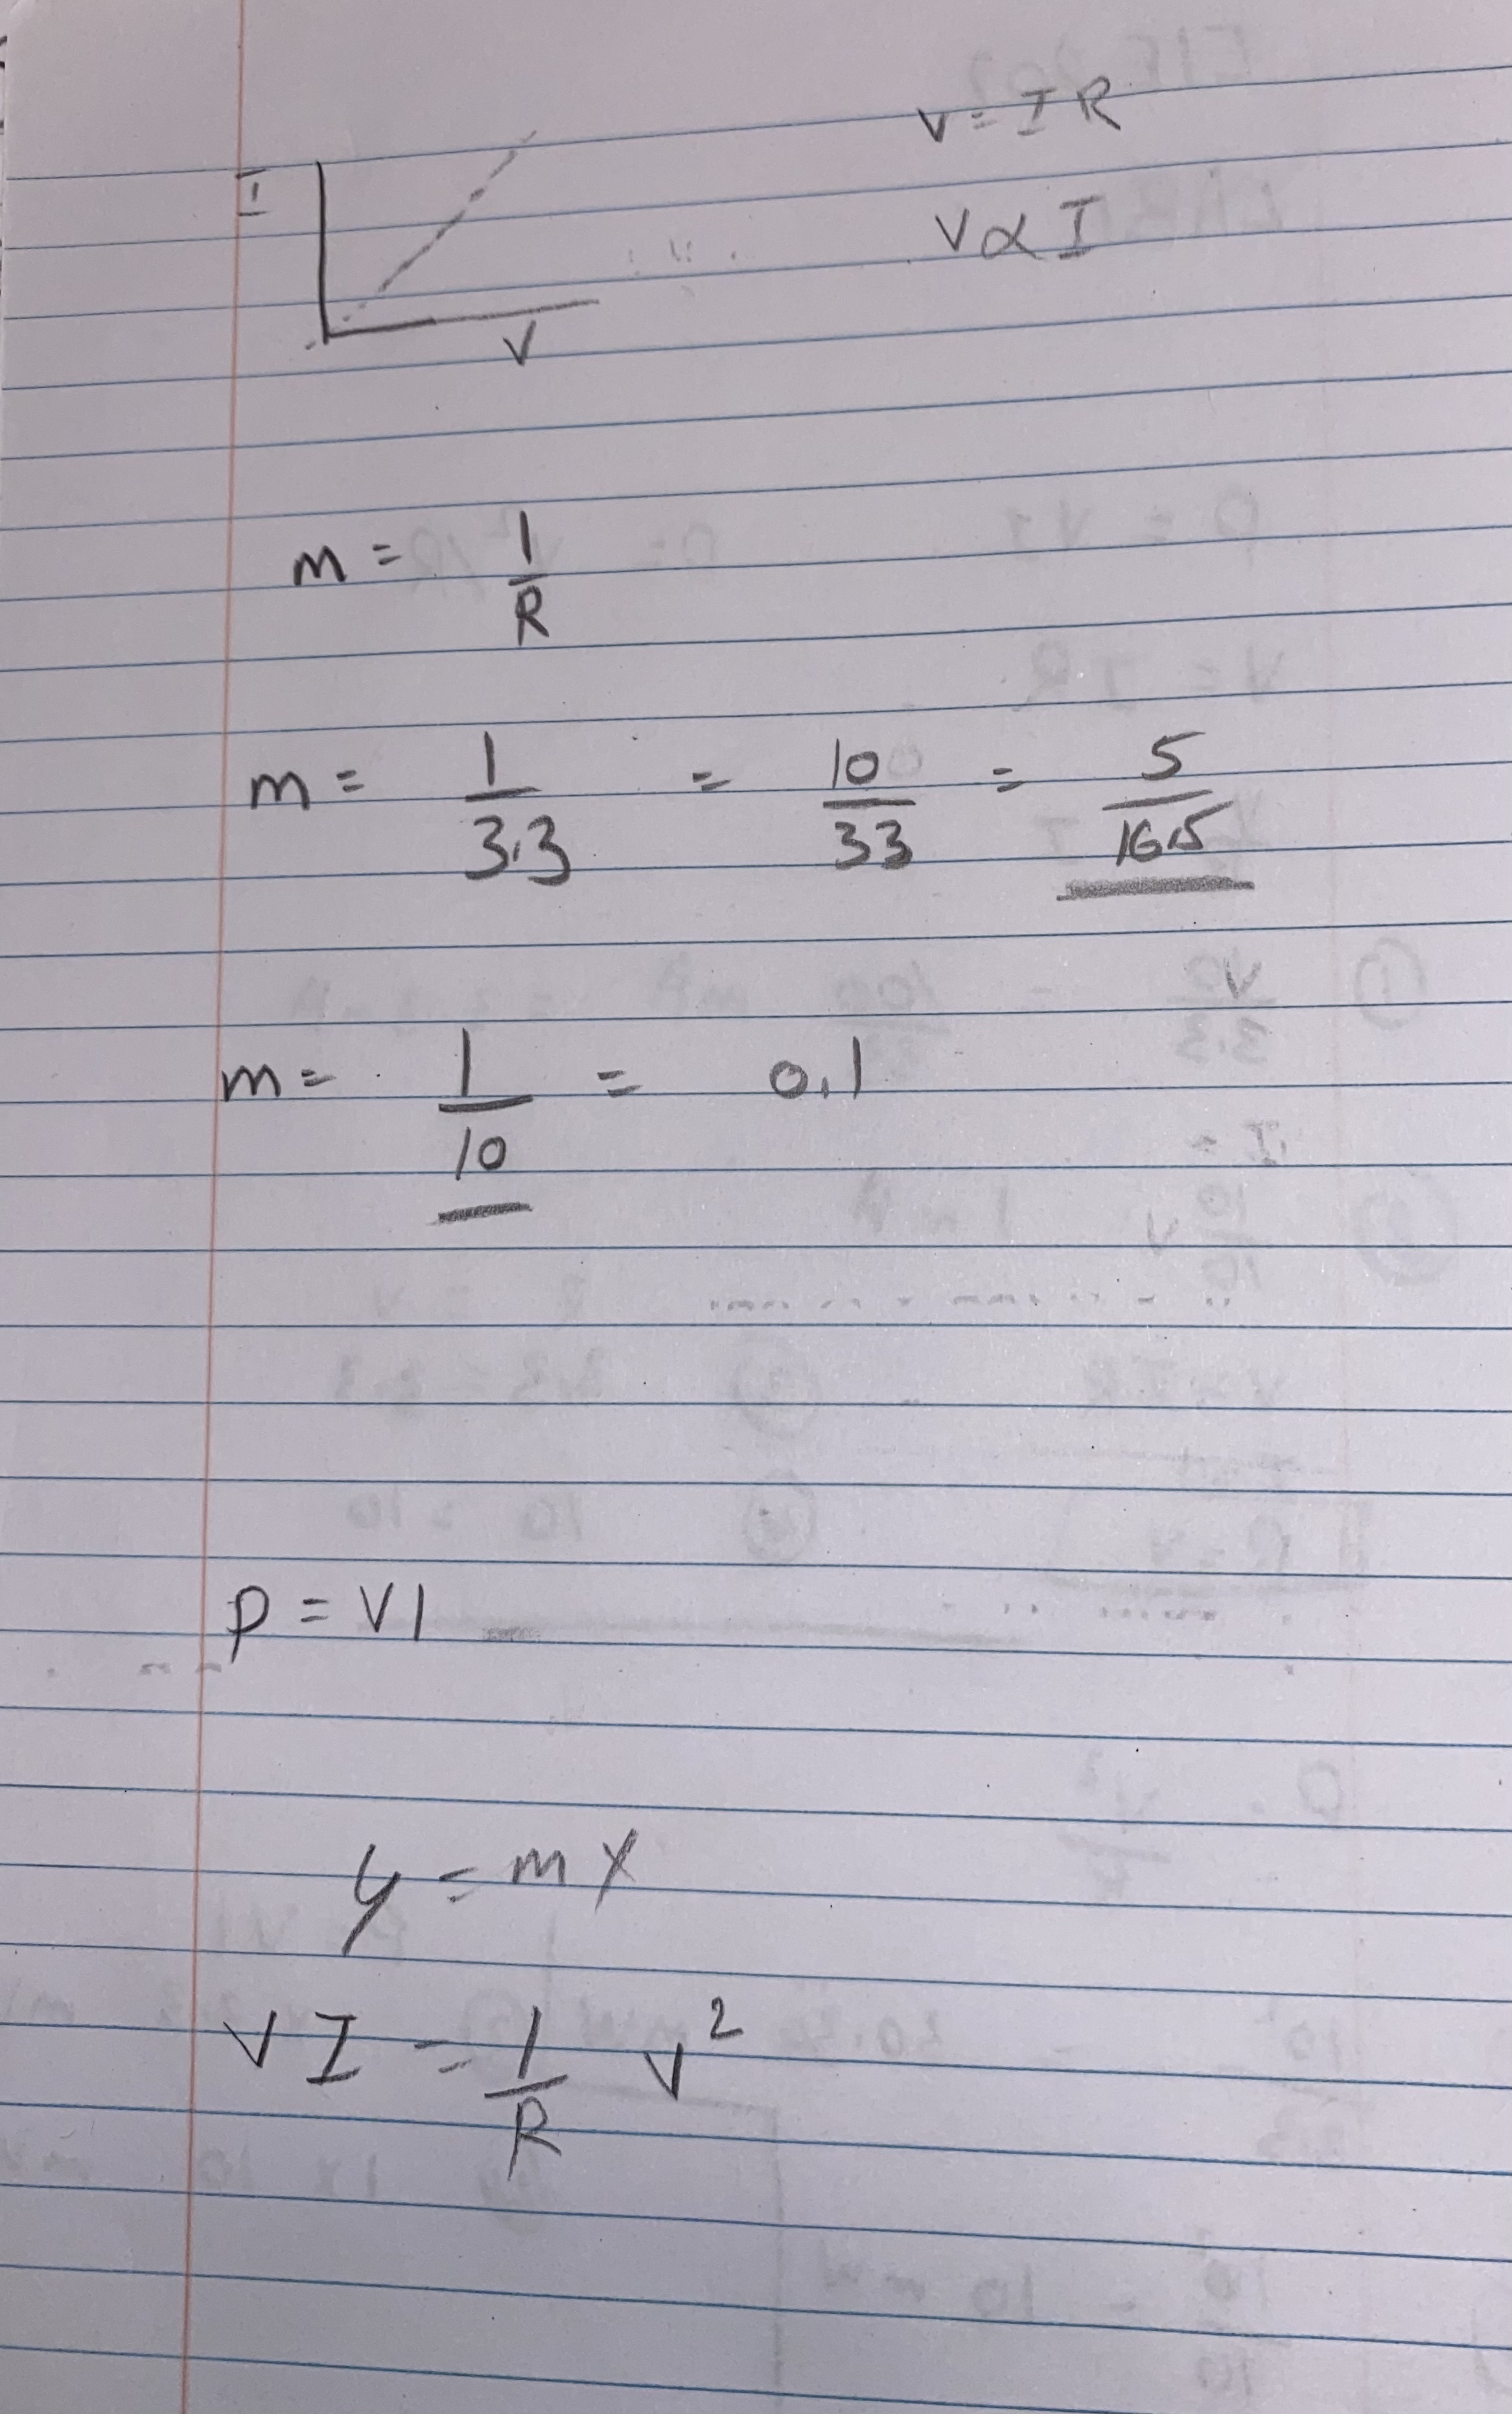 V = I R
I
V ∝ I
V
m = 1/R
m = 1/3.3 = 10/33 = 5/16.5
m = 1/10 = 0.1
P = VI
y = mx
VI = 1/R V²